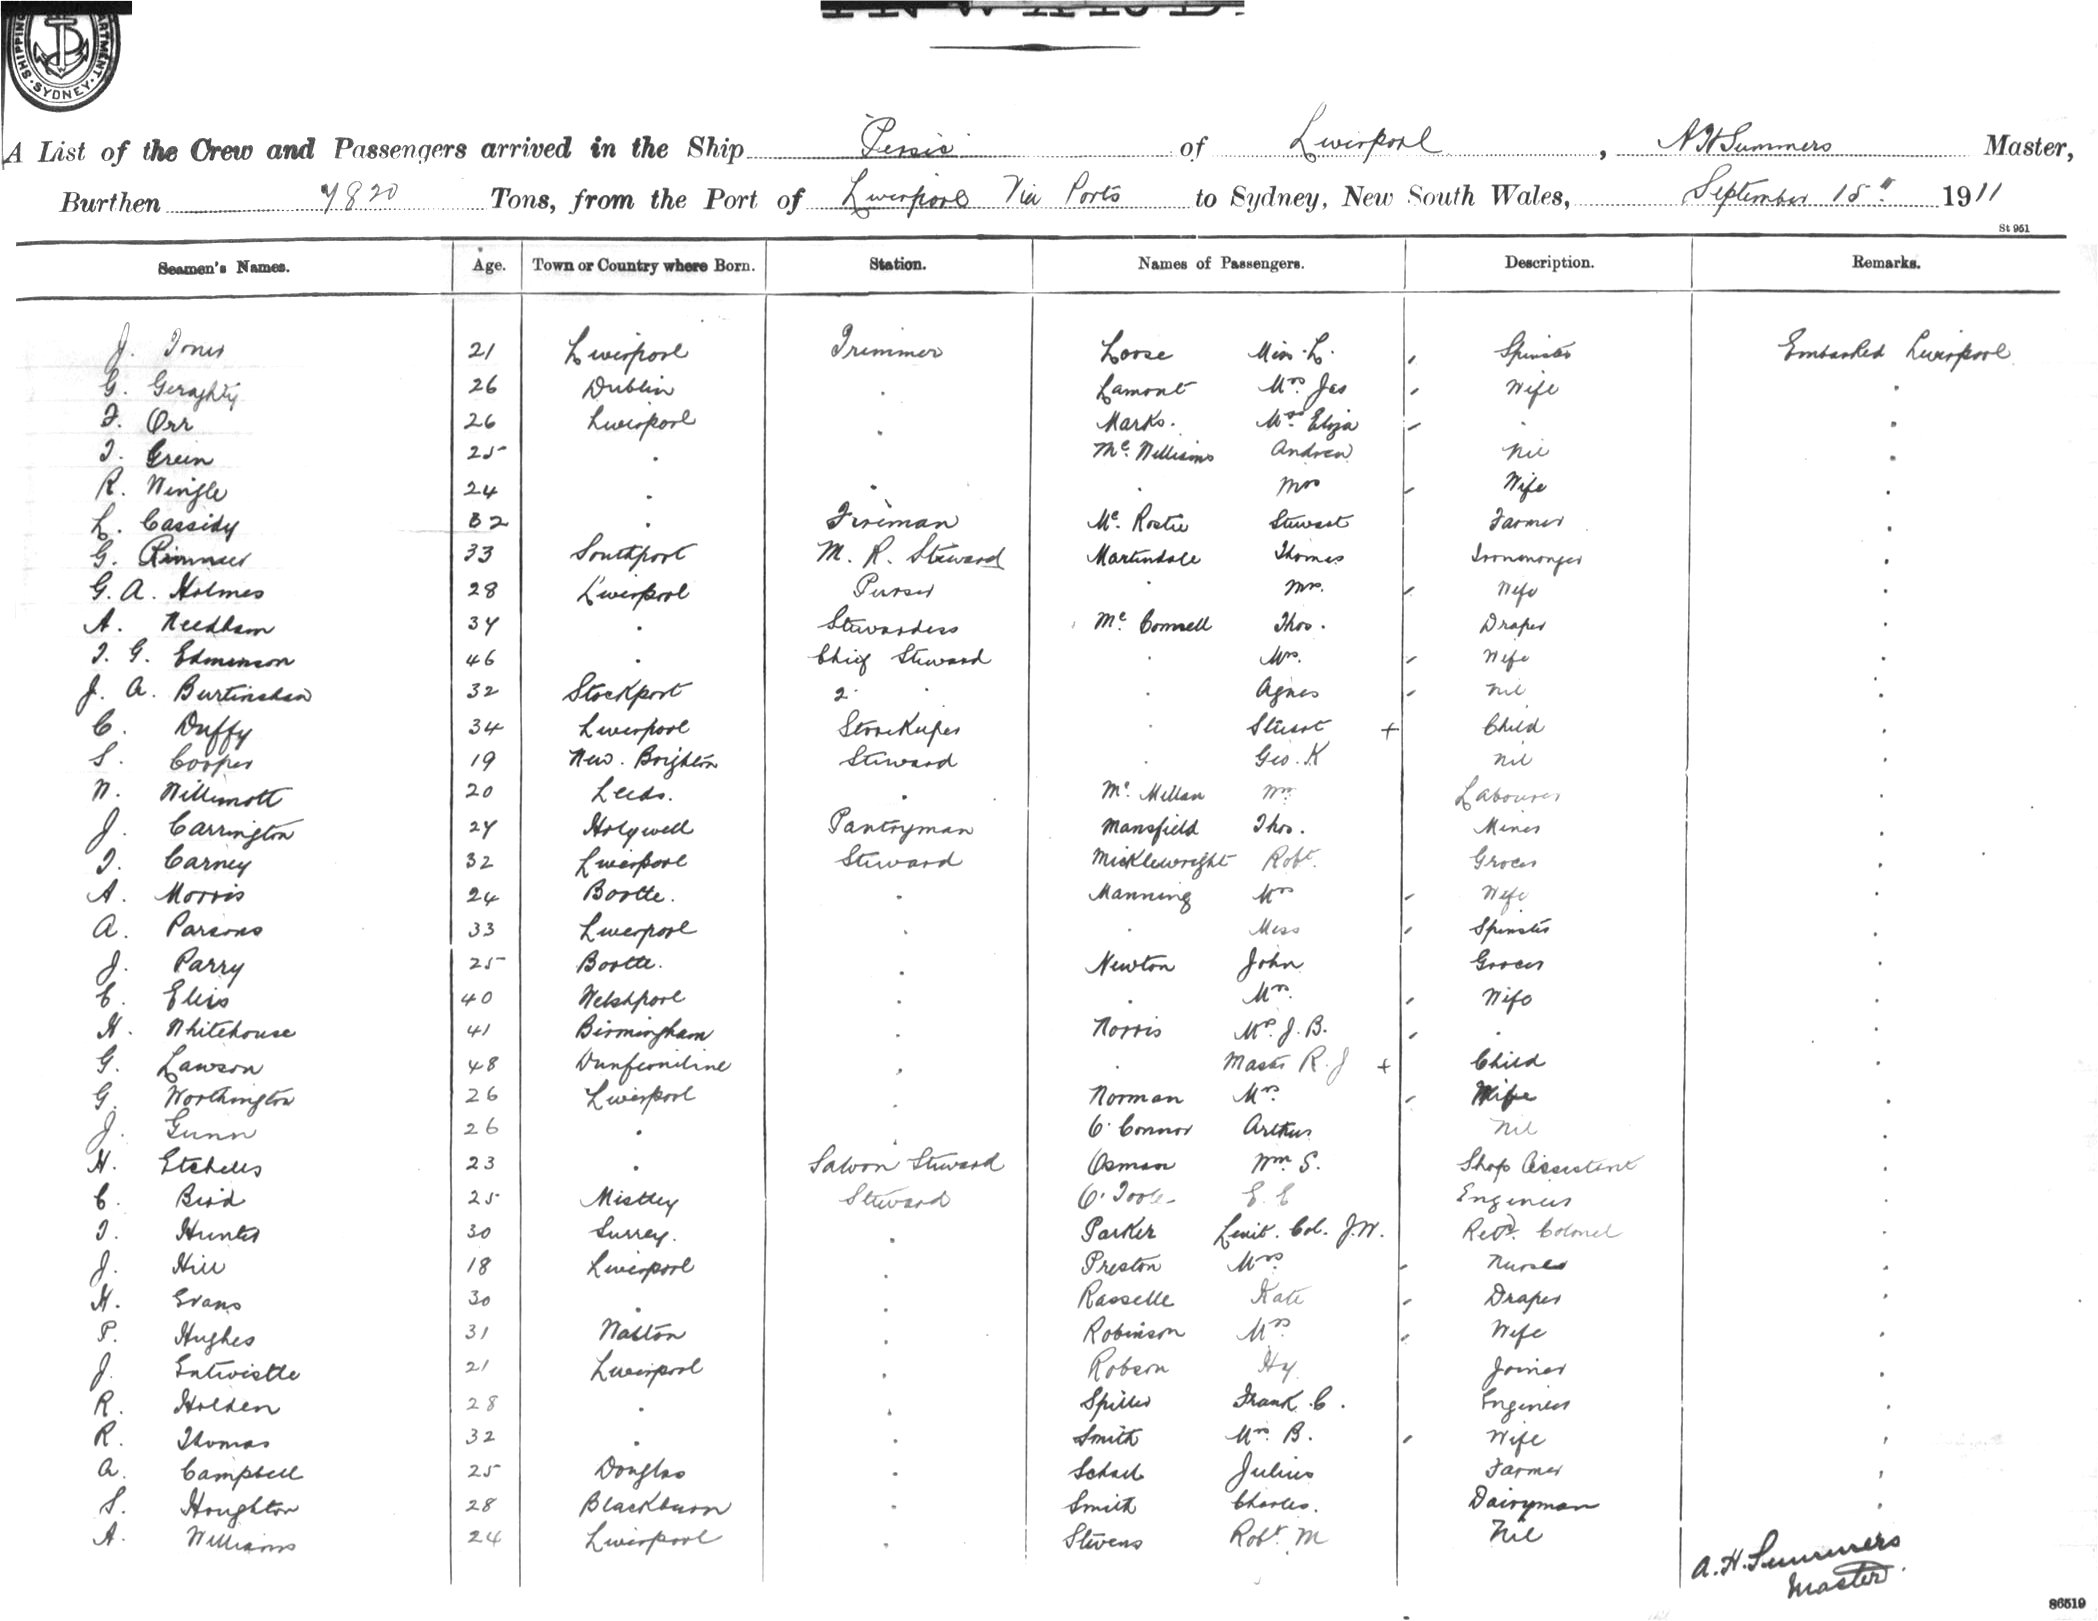 SHIPPING DEPARTMENT SYDNEY
INWARD
A List of the Crew and Passengers arrived in the Ship Persic of Liverpool, A H Summers Master,
Burthen 7820 Tons, from the Port of Liverpool Via Ports to Sydney, New South Wales, September 15th 1911
St 951
Seamen's Names. Age. Town or Country where Born. Station. Names of Passengers. Description. Remarks.
J. Jones 21 Liverpool Trimmer Loose Miss L. , Spinster Embarked Liverpool
G. Geraghty 26 Dublin . Lamont Mrs Jas , Wife .
F. Orr 26 Liverpool . Marks. Mrs Eliza , . .
T. Green 25 . Mc. Williams Andrew Nil .
R. Wingle 24 . . . Mrs , Wife .
L. Cassidy 32 . Fireman Mc. Rostie Stewart Farmer .
G. Rimmer 33 Southport M. R. Steward Martindale Thomas Ironmonger .
G. A. Holmes 28 Liverpool Purser . Mrs. , Wife .
A. Needham 34 . Stewardess Mc Connell Thos. Draper .
T. G. Edmenson 46 . Chief Steward . Mrs. , Wife .
J. A. Burtinshaw 32 Stockport 2 . . Agnes , Nil .
C. Duffy 34 Liverpool Storekeeper . Stuart + Child .
S. Cooper 19 New. Brighton Steward . Geo. K Nil .
W. Willimott 20 Leeds. . Mc. Millan Wm Labourer .
J. Carrington 24 Holywell Pantryman Mansfield Thos. Miner .
T. Carney 32 Liverpool Steward Micklewright Robt. Grocer .
A. Morris 24 Bootle. . Manning Mrs , Wife .
A. Parsons 33 Liverpool . . Miss , Spinster .
J. Parry 25 Bootle. . Newton John Grocer .
C. Ellis 40 Welshpool . . Mrs. , Wife .
H. Whitehouse 41 Birmingham . Norris Mrs. J. B. , . .
G. Lawson 48 Dunfermline . . Master R. J + Child .
G. Worthington 26 Liverpool . Norman Mrs. , Wife .
J. Gunn 26 . . O' Connor Arthur Nil .
H. Etchells 23 . Saloon Steward Osman Wm. S. Shop Assistant .
C. Bird 25 Mistley Steward O' Toole E. E Engineer .
T. Hunter 30 Surrey. . Parker Lieut. Col. J. W. Retd. Colonel .
J. Hill 18 Liverpool . Preston Mrs , Nurse .
H. Evans 30 . . Rasselle Kate , Draper .
P. Hughes 31 Walton . Robinson Mrs. , Wife .
J. Entwistle 21 Liverpool . Robson Hy Joiner .
R. Holden 28 . . Spiller Frank C. Engineer .
R. Thomas 32 . . Smith Mrs. B. , Wife .
A. Campbell 25 Douglas . Julius Farmer .
S. Houghton 28 Blackburn . Smith Charles. Dairyman .
A. Williams 24 Liverpool . Stevens Robt. M Nil
A. H. Summers
Master.
86519